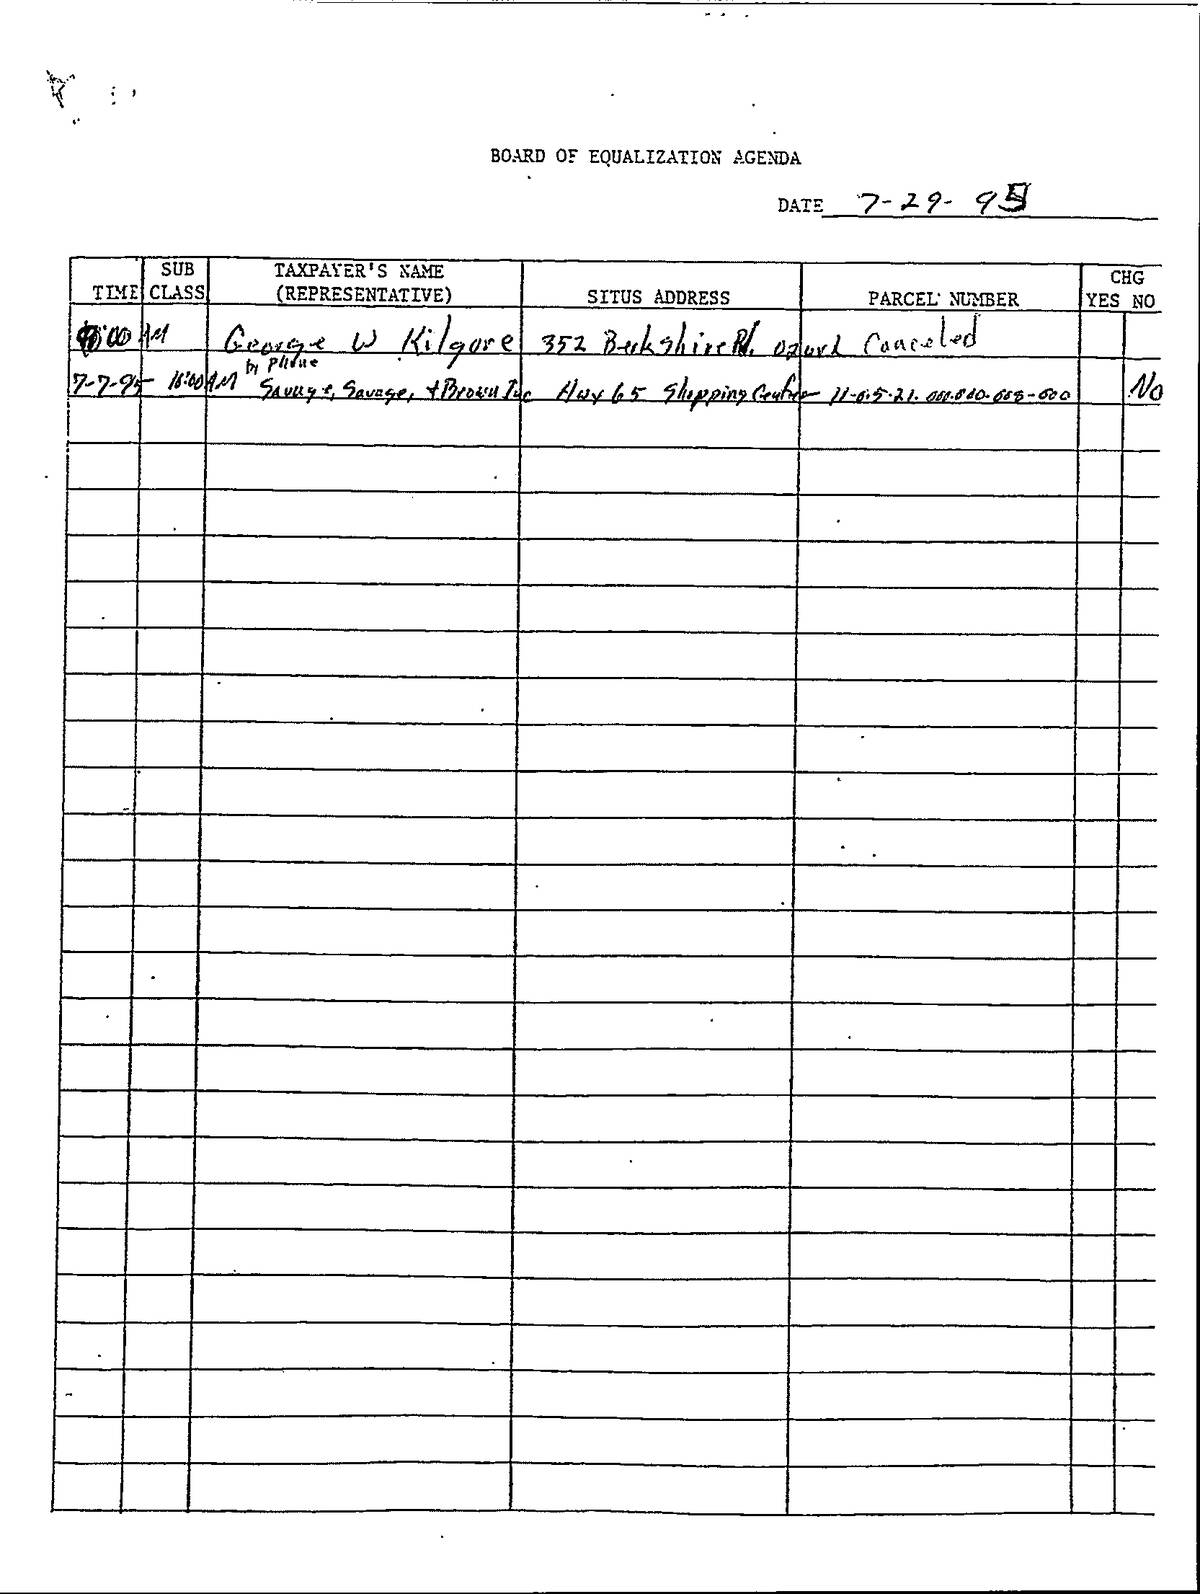 BOARD OF EQUALIZATION AGENDA
DATE 7-29-95
TIME SUB CLASS TAXPAYER'S NAME (REPRESENTATIVE) SITUS ADDRESS PARCEL NUMBER CHG YES NO
:00 AM George W Kilgore 352 Berkshire Rd. Ozark Canceled
by Phone
7-7-95 10:00 AM Savage, Savage, + Brown Inc Hwy 65 Shopping Center 11-0.5-21.000.000.008-000 No